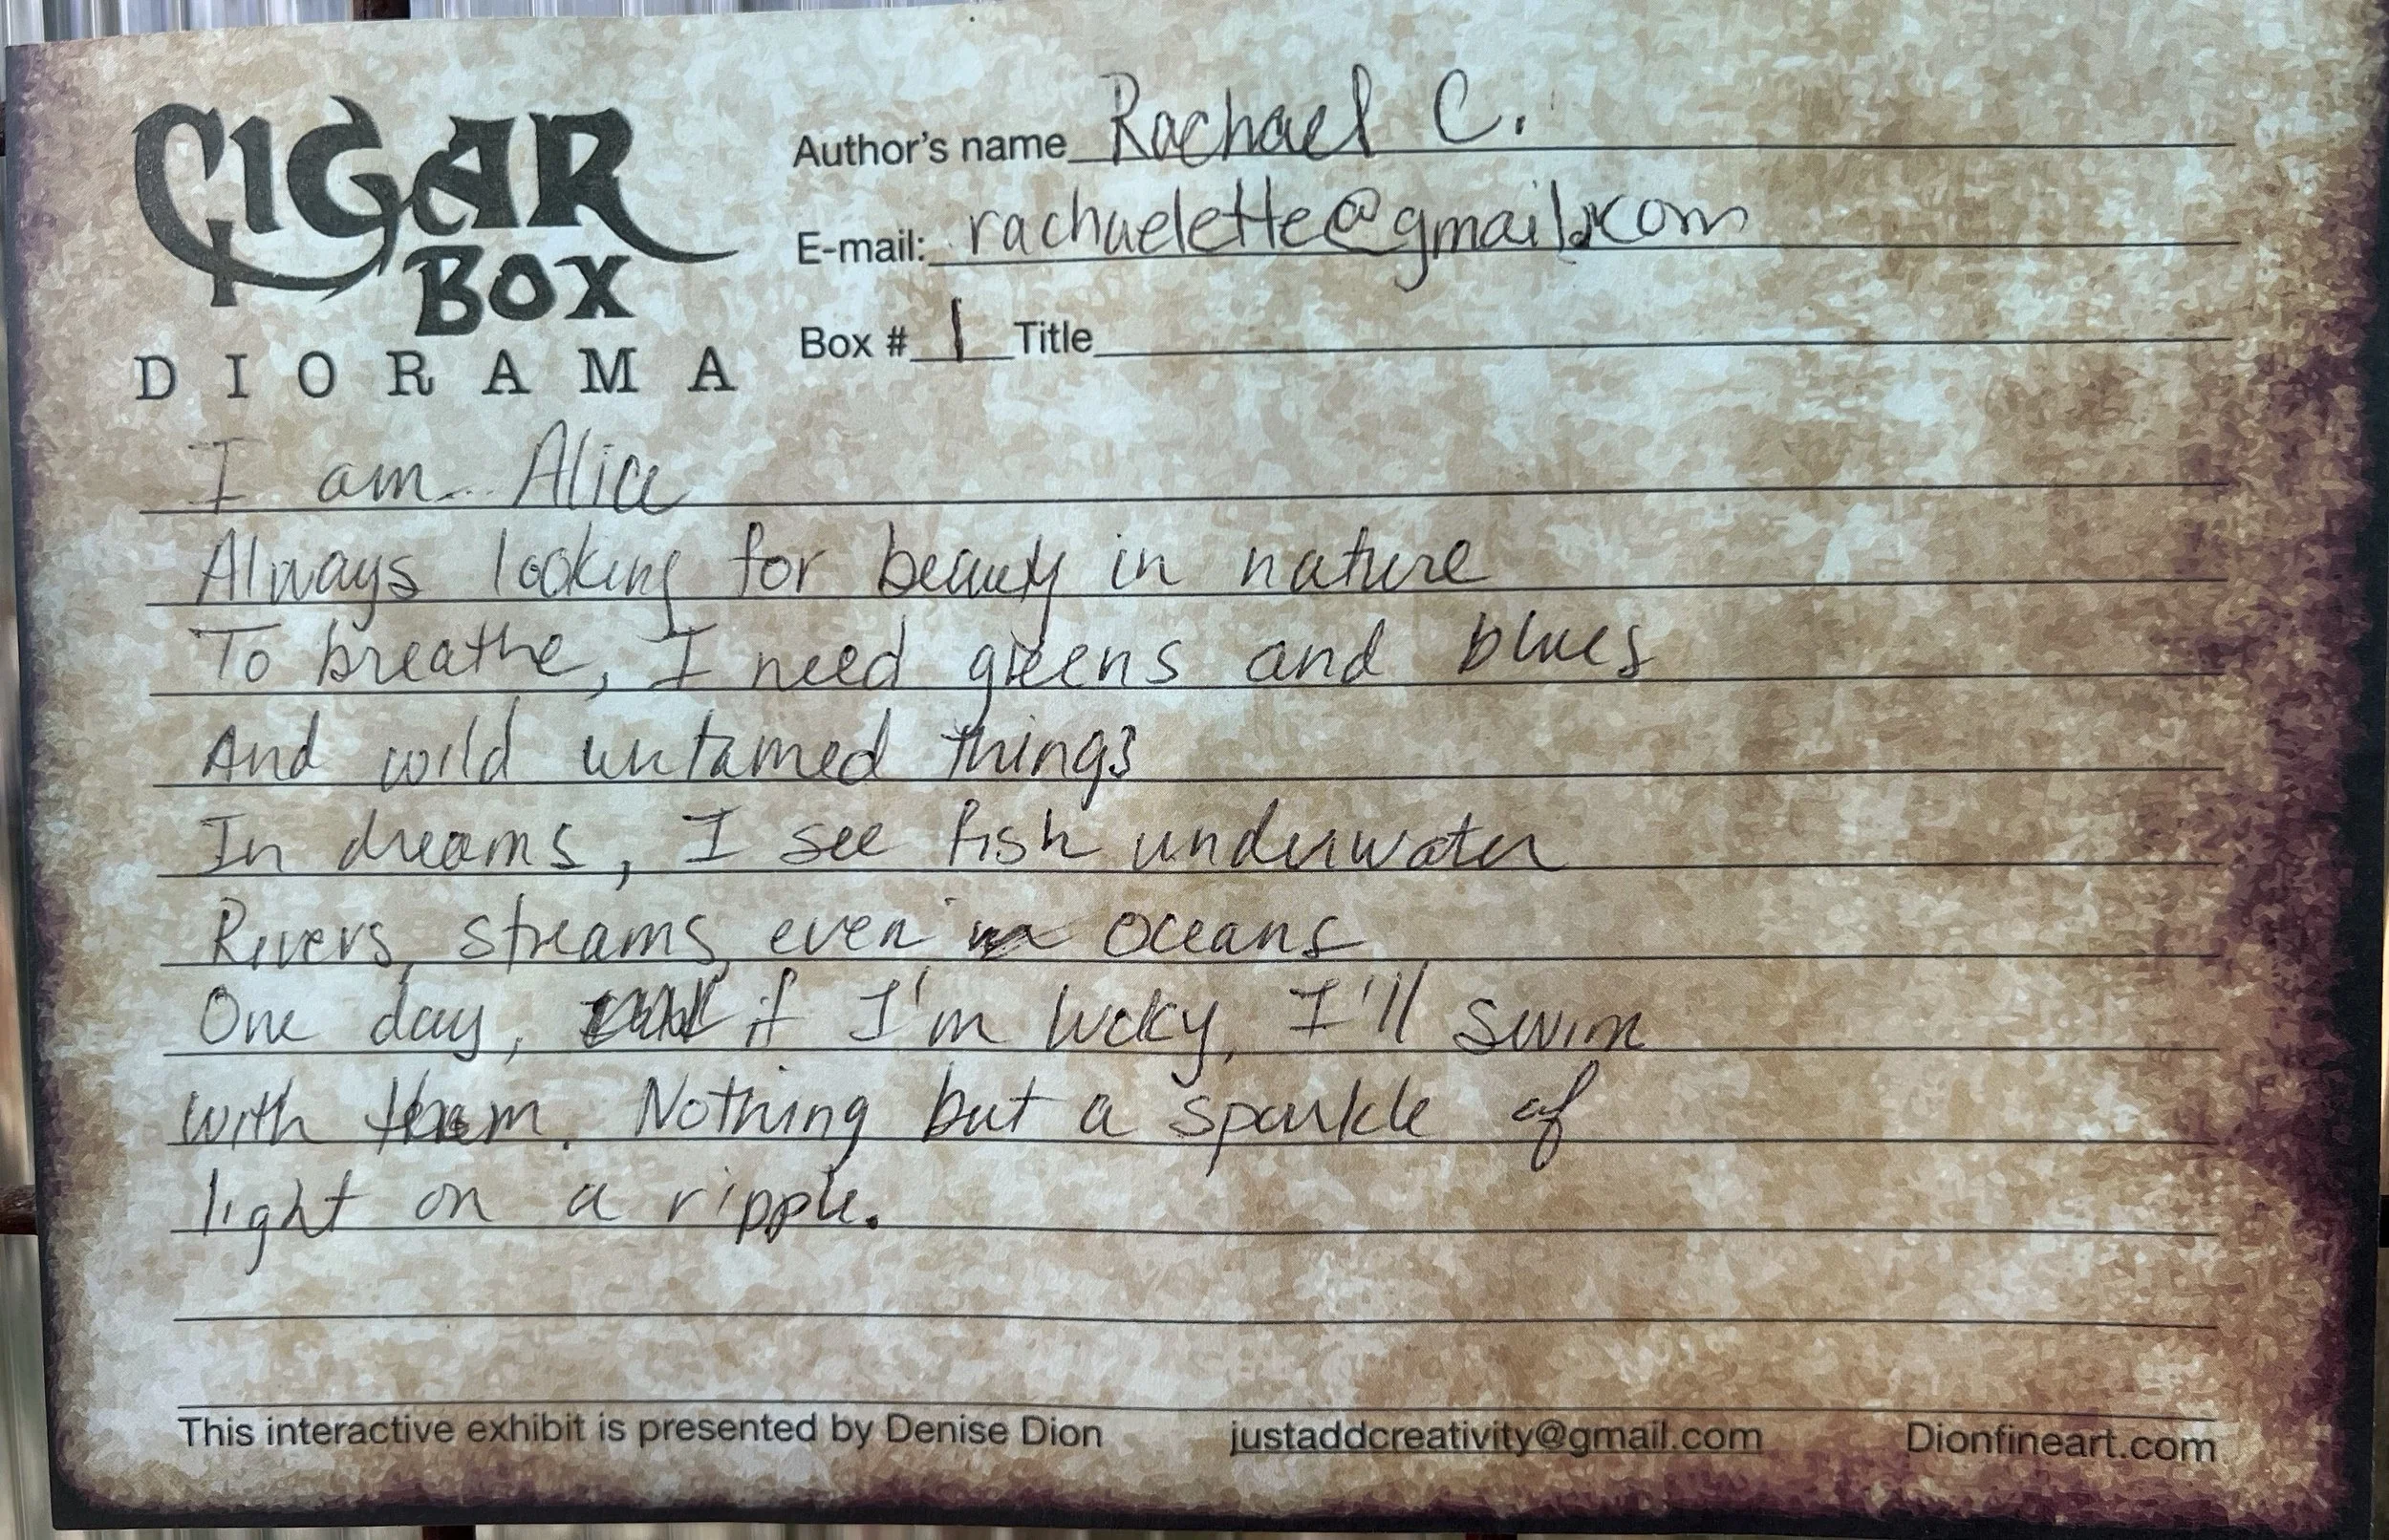 CIGAR
BOX
DIORAMA
Author's name Rachael C.
E-mail: rachaelette@gmail.com
Box # 1 Title
I am Alice
Always looking for beauty in nature
To breathe, I need greens and blues
And wild untamed things
In dreams, I see fish underwater
Rivers, streams, even in oceans
One day, if I'm lucky, I'll swim
with them. Nothing but a sparkle of
light on a ripple.
This interactive exhibit is presented by Denise Dion justaddcreativity@gmail.com Dionfineart.com